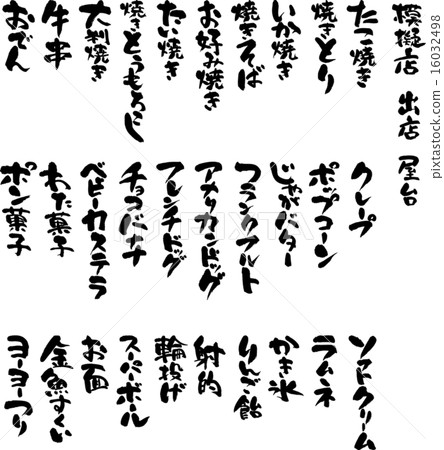 模擬店 出店 屋台
たこ焼き
焼きとり
いか焼き
焼きそば
お好み焼き
たい焼き
焼きとうもろこし
大判焼き
牛串
おでん
クレープ
ポップコーン
じゃがバター
フランクフルト
アメリカンドッグ
フレンチドッグ
チョコバナナ
ベビーカステラ
わた菓子
ポン菓子
ソフトクリーム
ラムネ
かき氷
りんご飴
射的
輪投げ
スーパーボール
お面
金魚すくい
ヨーヨーつり
PIXTA
16032498